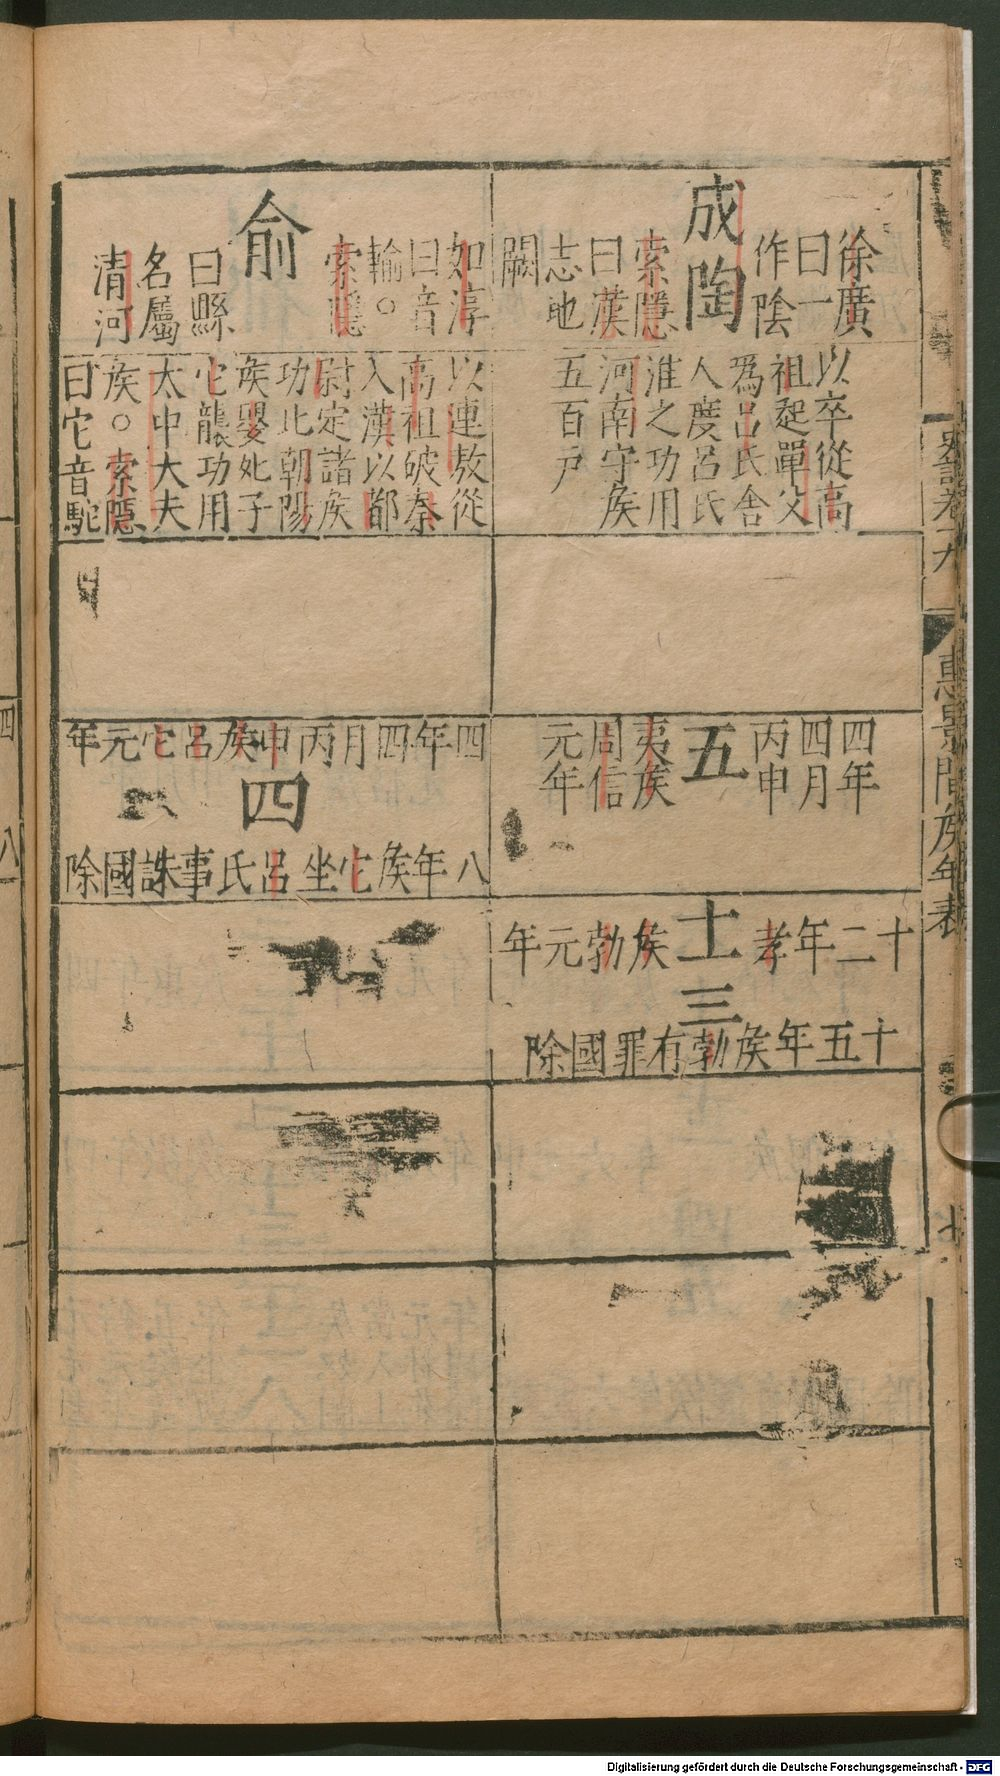 史記卷十九
惠景間矦年表
七
徐廣
曰一
作陰
成陶
索隱
曰漢
志地
闕
以卒從高
祖起單父
為呂氏舍
人度呂氏
淮之功用
河南守矦
五百户
四年
四月
丙申
五
夷矦
周信
元年
十二年孝矦勃元年
十一
三
十五年矦勃有罪國除
如淳
曰音
輸○
索隱
俞
曰縣
名屬
清河
以連敖從
高祖破秦
入漢以都
尉定諸矦
功比朝陽
矦嬰死子
它襲功用
太中大夫
矦○索隱
曰它音駝
四年四月丙申矦呂它元年
四
八年矦它坐呂氏事誅國除
四
八
Digitalisierung gefördert durch die Deutsche Forschungsgemeinschaft - DFG